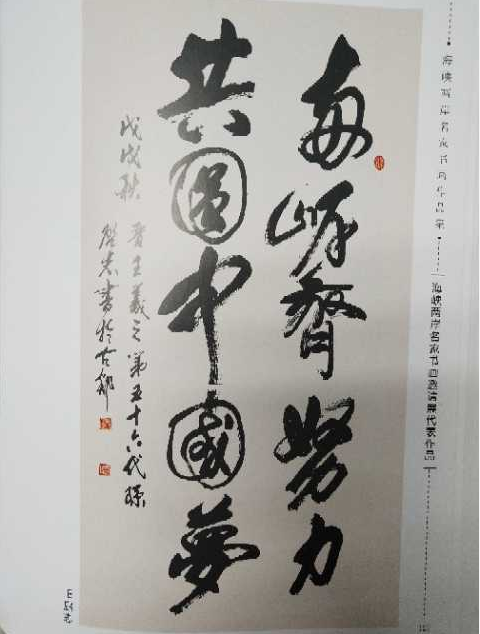 海峡两岸名家书画作品集
海峡两岸名家书画邀请展代表作品
兩岸齊努力
共圓中國夢
戊戌秋 晋王羲之第五十六代孫
志書於古都